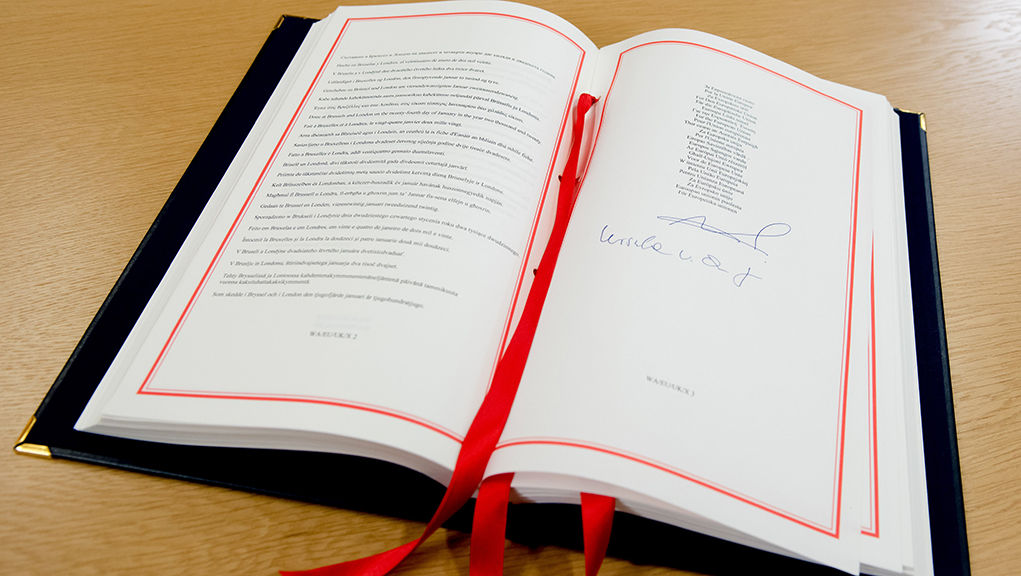 Hecho en Bruselas y Londres, el veinticuatro de enero de dos mil veinte.
V Bruselu a v Londýně dne dvacátého čtvrtého ledna dva tisíce dvacet.
Udfærdiget i Bruxelles og London, den fireogtyvende januar to tusind og tyve.
Geschehen zu Brüssel und London am vierundzwanzigsten Januar zweitausendzwanzig.
Kahe tuhande kahekümnenda aasta jaanuarikuu kahekümne neljandal päeval Brüsselis ja Londonis.
Έγινε στις Βρυξέλλες και στο Λονδίνο, στις είκοσι τέσσερις Ιανουαρίου δύο χιλιάδες είκοσι.
Done at Brussels and London on the twenty-fourth day of January in the year two thousand and twenty.
Fait à Bruxelles et à Londres, le vingt-quatre janvier deux mille vingt.
Arna dhéanamh sa Bhruiséil agus i Londain, an ceathrú lá is fiche d'Eanáir an bhliain dhá mhíle fiche.
Sastavljeno u Bruxellesu i Londonu dvadeset četvrtog siječnja godine dvije tisuće dvadesete.
Fatto a Bruxelles e Londra, addì ventiquattro gennaio duemilaventi.
Briselē un Londonā, divi tūkstoši divdesmitā gada divdesmit ceturtajā janvārī.
Priimta du tūkstančiai dvidešimtų metų sausio dvidešimt ketvirtą dieną Briuselyje ir Londone.
Kelt Brüsszelben és Londonban, a kétezer-huszadik év január havának huszonnegyedik napján.
Magħmul fi Brussell u Londra, fl-erbgħa u għoxrin jum ta' Jannar fis-sena elfejn u għoxrin.
Gedaan te Brussel en Londen, vierentwintig januari tweeduizend twintig.
Sporządzono w Brukseli i Londynie dnia dwudziestego czwartego stycznia roku dwa tysiące dwudziestego.
Feito em Bruxelas e em Londres, em vinte e quatro de janeiro de dois mil e vinte.
Întocmit la Bruxelles și la Londra la douăzeci și patru ianuarie două mii douăzeci.
V Bruseli a Londýne dvadsiateho štvrtého januára dvetisícdvadsať.
V Bruslju in Londonu, štiriindvajsetega januarja dva tisoč dvajset.
Tehty Brysselissä ja Lontoossa kahdentenakymmenentenäneljäntenä päivänä tammikuuta
vuonna kaksituhattakaksikymmentä.
Som skedde i Bryssel och i London den tjugofjärde januari år tjugohundratjugo.
WA/EU/UK/X 2
За Европейския съюз
Por la Unión Europea
Za Evropskou unii
For Den Europæiske Union
Für die Europäische Union
Euroopa Liidu nimel
Για την Ευρωπαϊκή Ένωση
For the European Union
Pour l'Union européenne
Thar ceann an Aontais Eorpaigh
Za Europsku uniju
Per l'Unione europea
Eiropas Savienības vārdā
Europos Sąjungos vardu
Az Európai Unió részéről
Għall-Unjoni Ewropea
Voor de Europese Unie
W imieniu Unii Europejskiej
Pela União Europeia
Pentru Uniunea Europeană
Za Európsku úniu
Za Evropsko unijo
Euroopan unionin puolesta
För Europeiska unionen
WA/EU/UK/X 3